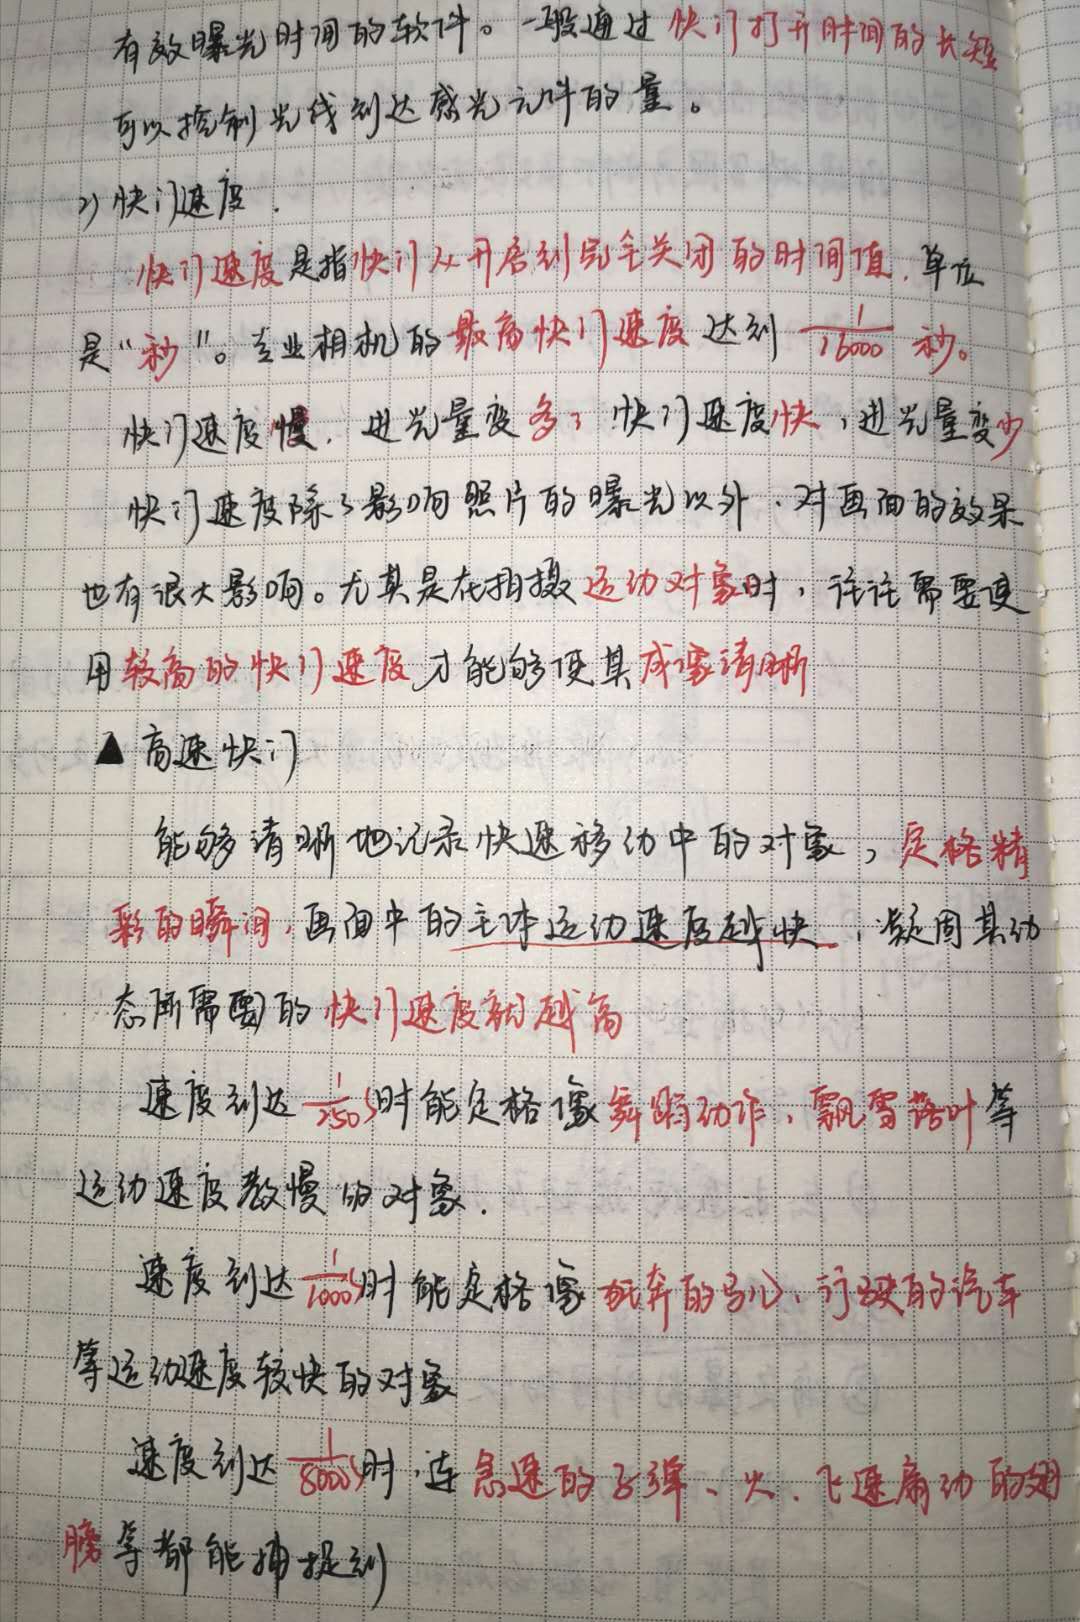 有效曝光时间的软件。一般通过快门打开时间的长短
可以控制光线到达感光元件的量。
2) 快门速度.
快门速度是指快门从开启到完全关闭的时间值,单位
是“秒”。专业相机的最高快门速度达到 1/16000 秒。
快门速度慢,进光量变多;快门速度快,进光量变少
快门速度除了影响照片的曝光以外,对画面的效果
也有很大影响。尤其是在拍摄运动对象时,往往需要使
用较高的快门速度才能够使其成像清晰
▲ 高速快门
能够清晰地记录快速移动中的对象,定格精
彩的瞬间,画面中的主体运动速度越快,凝固其动
态所需要的快门速度就越高
速度到达 1/250s时能定格像舞蹈动作、飘雪落叶等
运动速度较慢的对象.
速度到达 1/1000s时能定格像狂奔的马儿、行驶的汽车
等运动速度较快的对象
速度到达 1/8000s时,连急速的子弹、火、飞速扇动的翅
膀等都能捕捉到